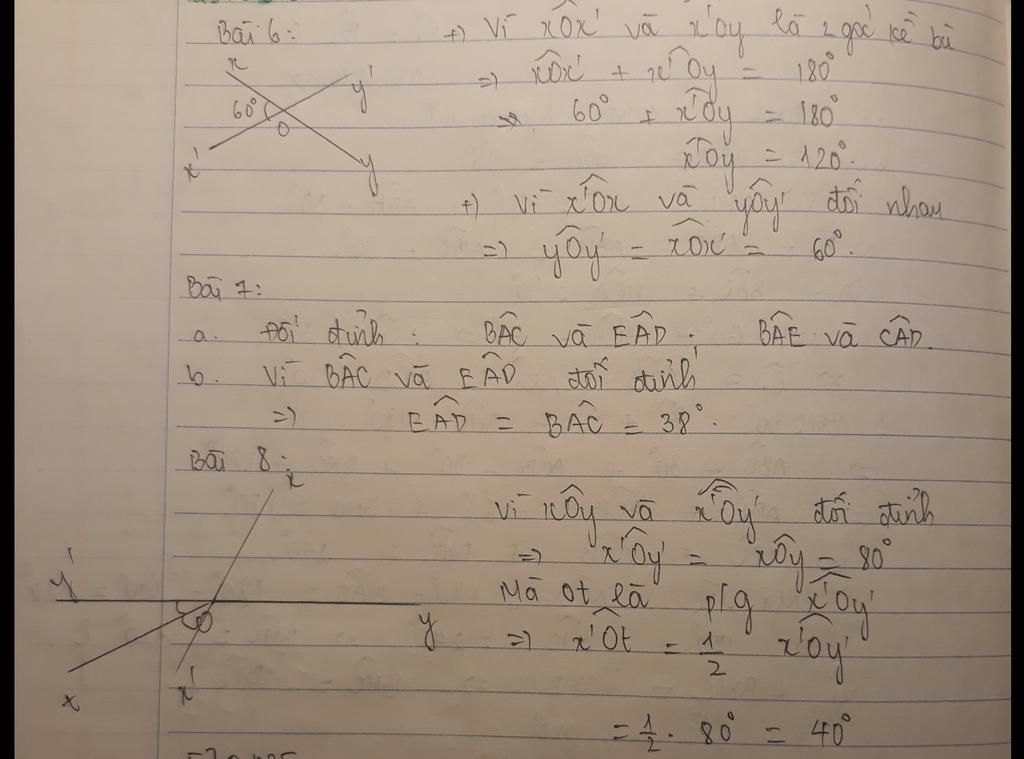 Bài 6:
x
y'
60°
O
x'
y
+) Vì xÔx' và x'Ôy là 2 góc kề bù
=> xÔx' + x'Ôy = 180°
=> 60° + x'Ôy = 180°
x'Ôy = 120°.
+) Vì x'Ôx và yÔy' đối nhau
=> yÔy' = xÔx' = 60°.
Bài 7:
a. Đối đỉnh : BÂC và EÂD ; BÂE và CÂD.
b. Vì BÂC và EÂD đối đỉnh
=> EÂD = BÂC = 38°.
Bài 8:
x
y'
y
x
x'
Vì xÔy và x'Ôy' đối đỉnh
=> x'Ôy' = xÔy = 80°
Mà Ot là p/g x'Ôy'
=> x'Ôt = 1/2 x'Ôy'
= 1/2 . 80° = 40°